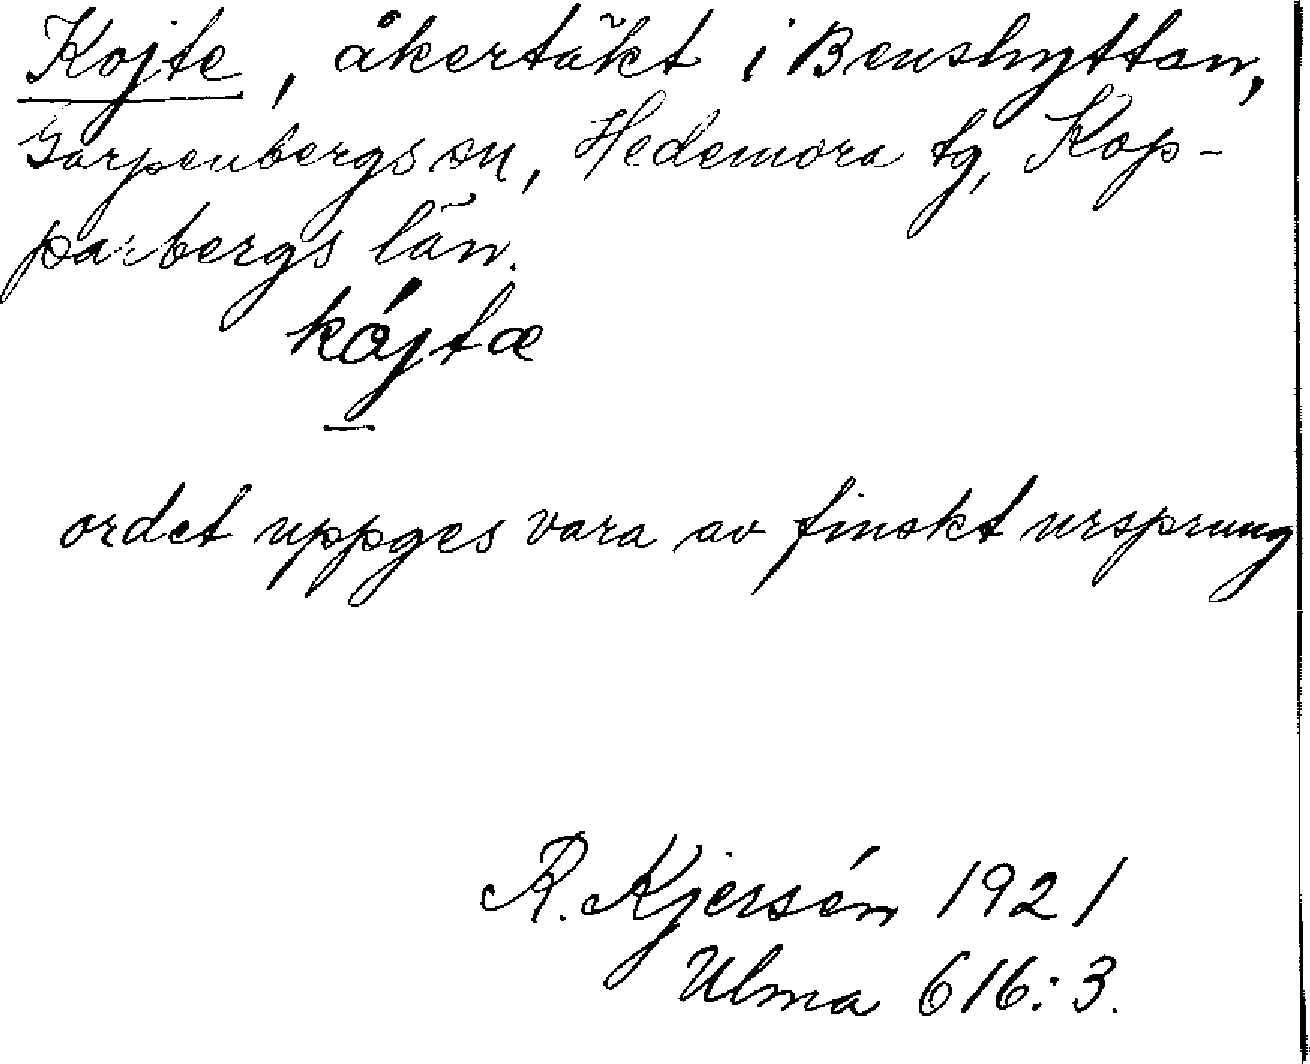 Kojte, åkertäkt i Benshyttan,
Garpenbergs sn, Hedemora tg, Kop-
parbergs län.
kójtæ
ordet uppges vara av finskt ursprung
R. Kjersén 1921
Ulma 616:3.